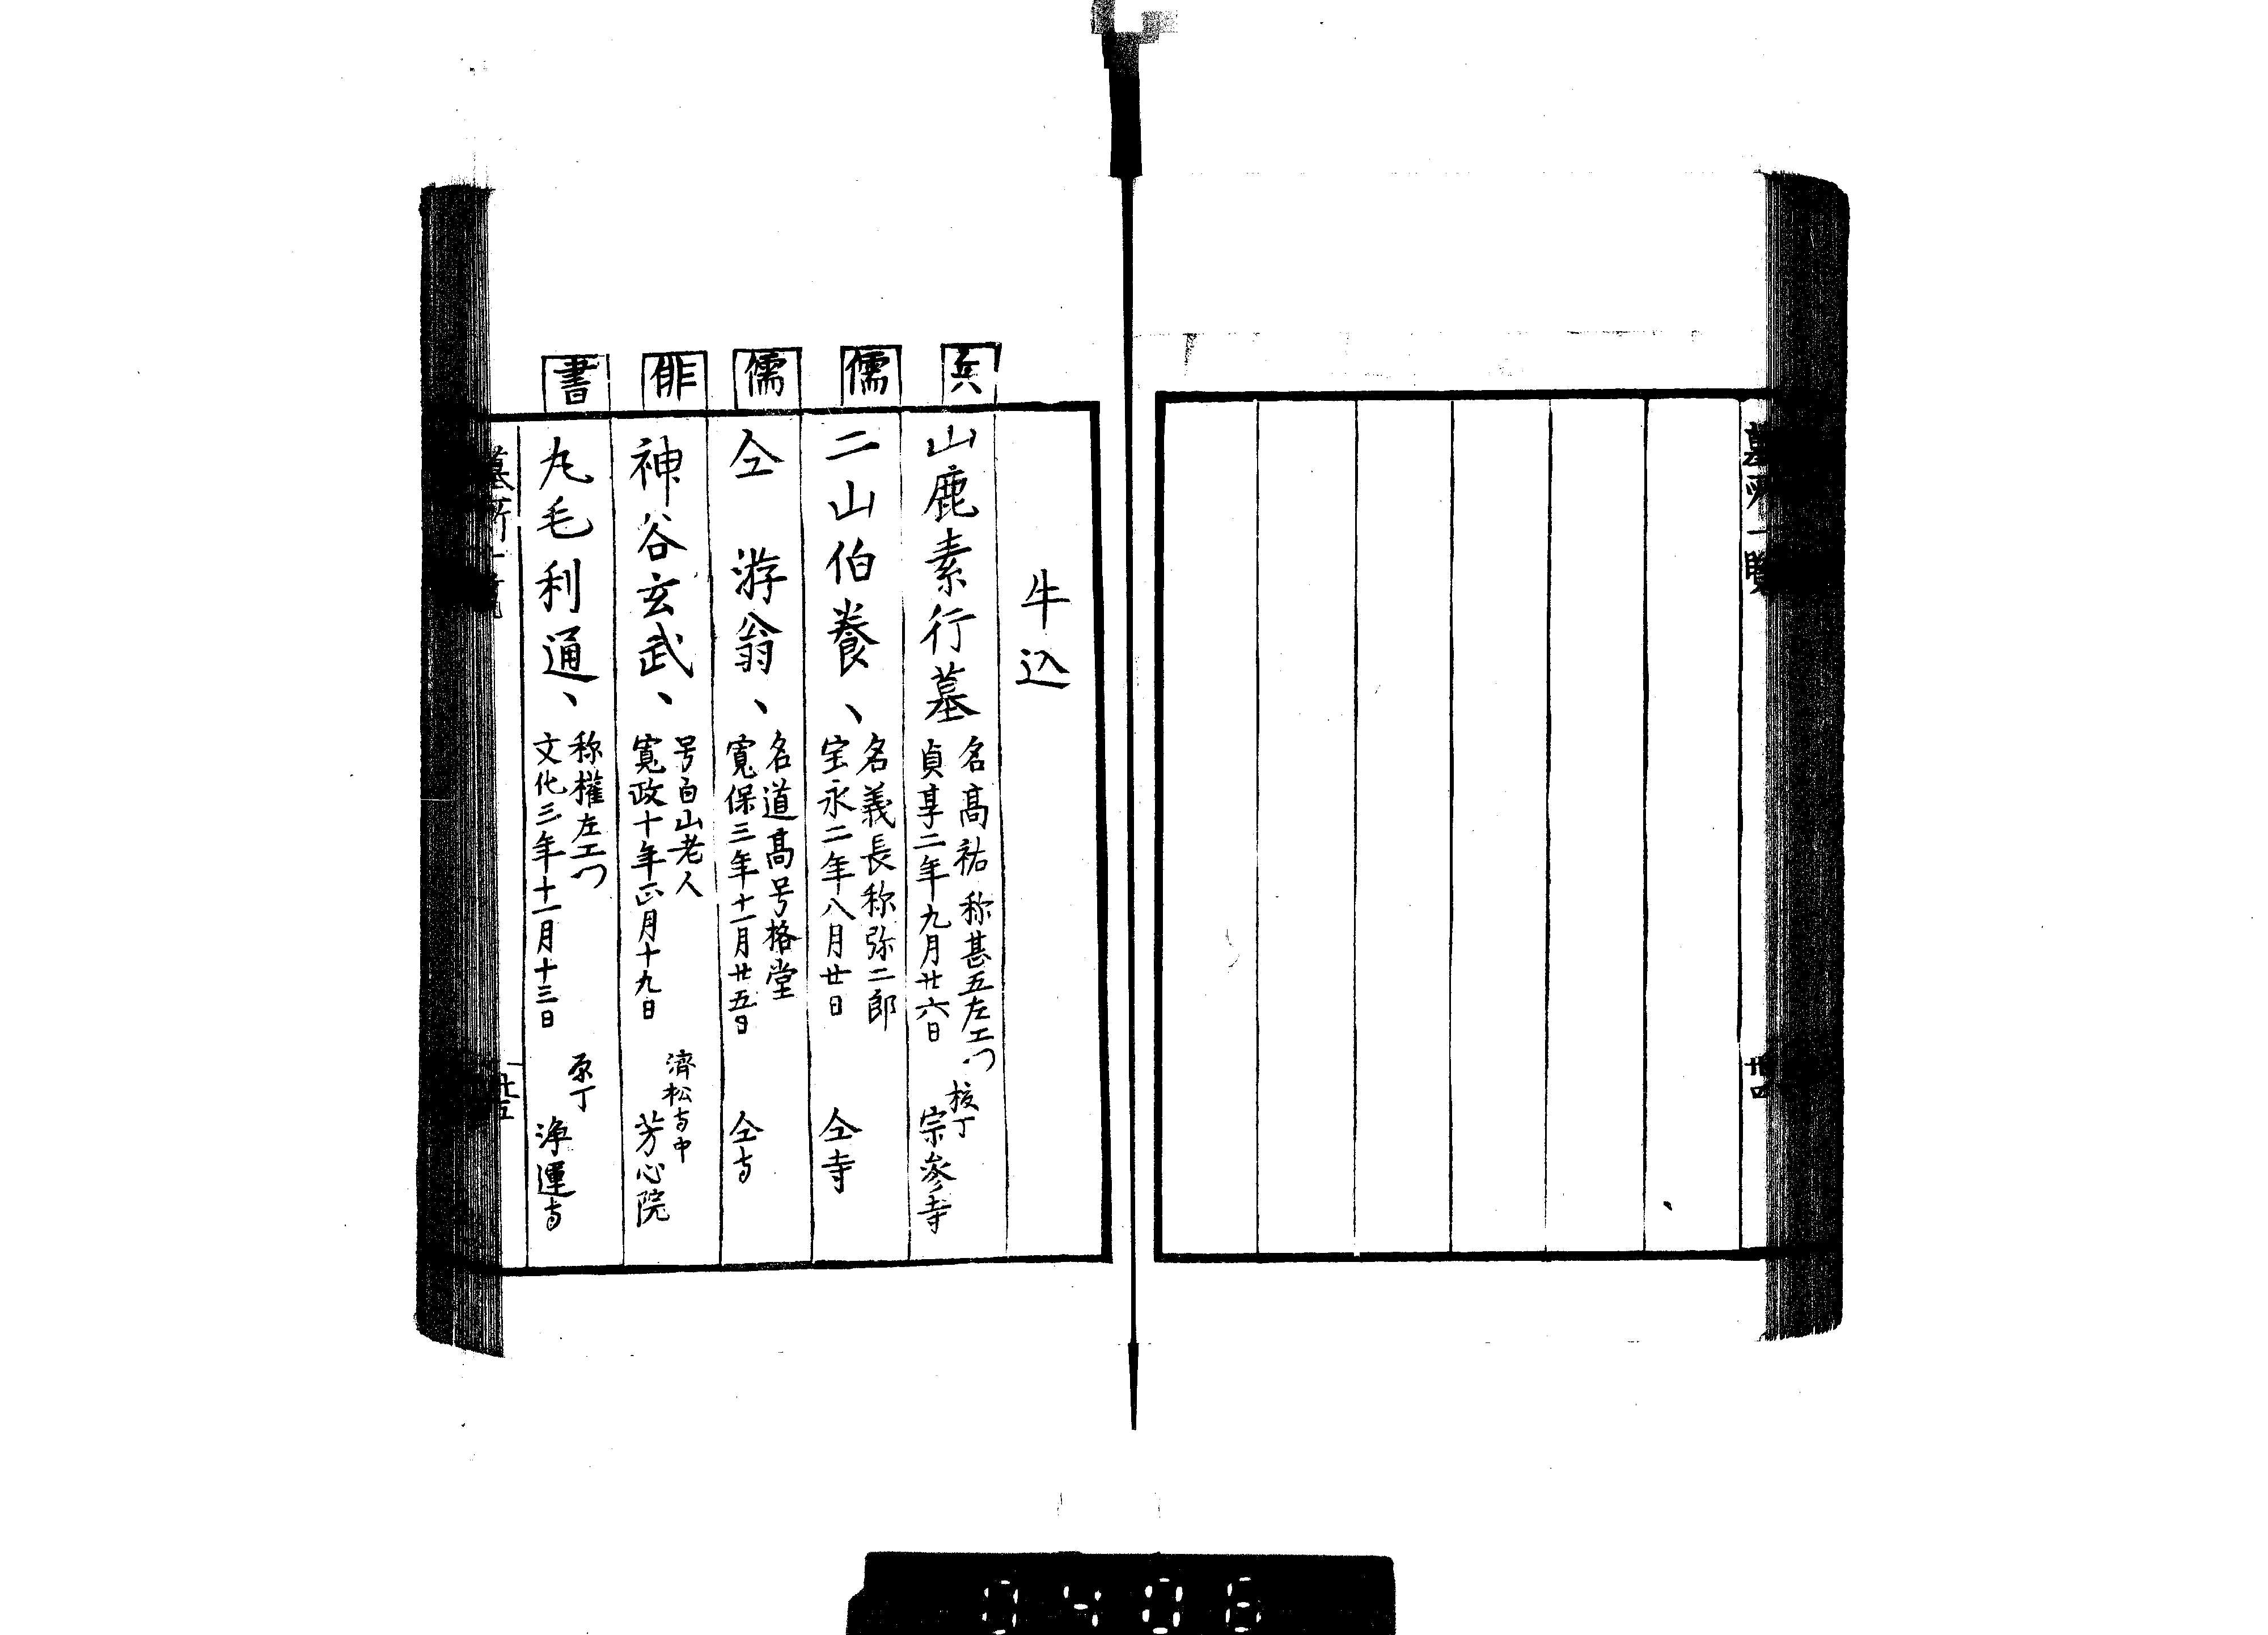 墓所一覧
廿四
牛込
兵
山鹿素行墓
名高祐 称甚五左エ門
貞享二年九月廿六日
榎丁
宗参寺
儒
二山伯養、
名義長称弥二郎
宝永二年八月廿日
仝寺
儒
仝 游翁、
名道高号格堂
寛保三年十一月廿五日
仝寺
俳
神谷玄武、
号白山老人
寛政十年正月十九日
濟松寺中
芳心院
書
丸毛利通、
称權左エ門
文化三年十一月十三日
原丁
浄運寺
墓所一覧
廿五
0406